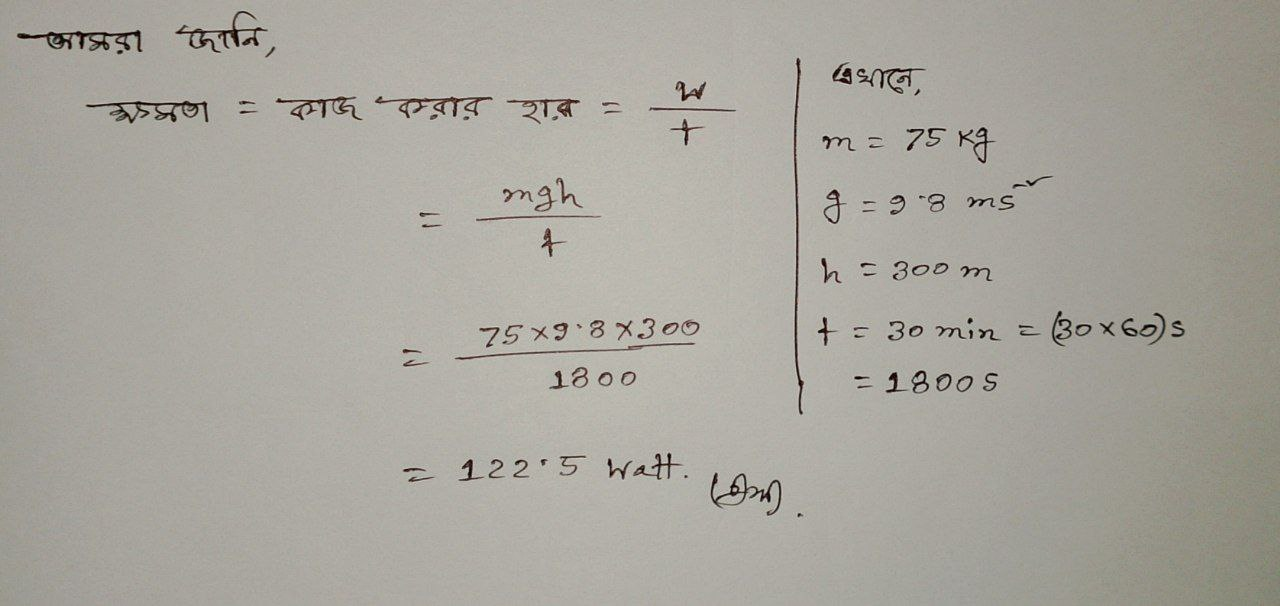 আমরা জানি,
ক্ষমতা = কাজ করার হার = W/t
= mgh/t
= 75×9.8×300/1800
= 122.5 Watt. (Ans).
এখানে,
m = 75 kg
g = 9.8 ms⁻²
h = 300 m
t = 30 min = (30×60)s
= 1800s